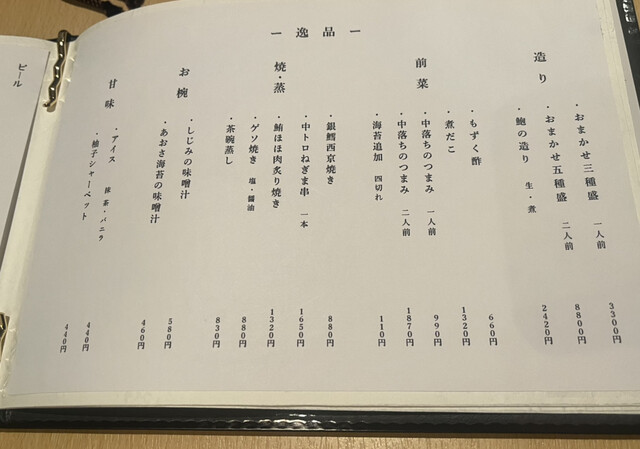 ー 逸品 ー
造り
・おまかせ三種盛 一人前 3300円
・おまかせ五種盛 二人前 8800円
・鮑の造り 生・煮 2420円
前菜
・もずく酢 660円
・煮だこ 1320円
・中落ちのつまみ 一人前 990円
・中落ちのつまみ 二人前 1870円
・海苔追加 四切れ 110円
焼・蒸
・銀鱈西京焼き 880円
・中トロねぎま串 一本 1650円
・鮪ほほ肉炙り焼き 1320円
・ゲソ焼き 塩・醤油 880円
・茶碗蒸し 830円
お椀
・しじみの味噌汁 580円
・あおさ海苔の味噌汁 460円
甘味
・アイス 抹茶・バニラ 440円
・柚子シャーベット 440円
ビール